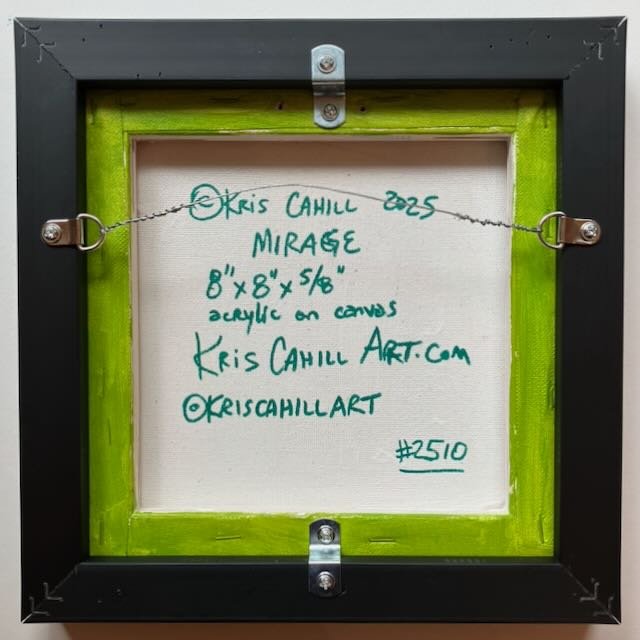 ©KRIS CAHILL 2025
MIRAGE
8" x 8" x 5/8"
acrylic on canvas
KRIS CAHILL ART.COM
@KRISCAHILLART
#2510